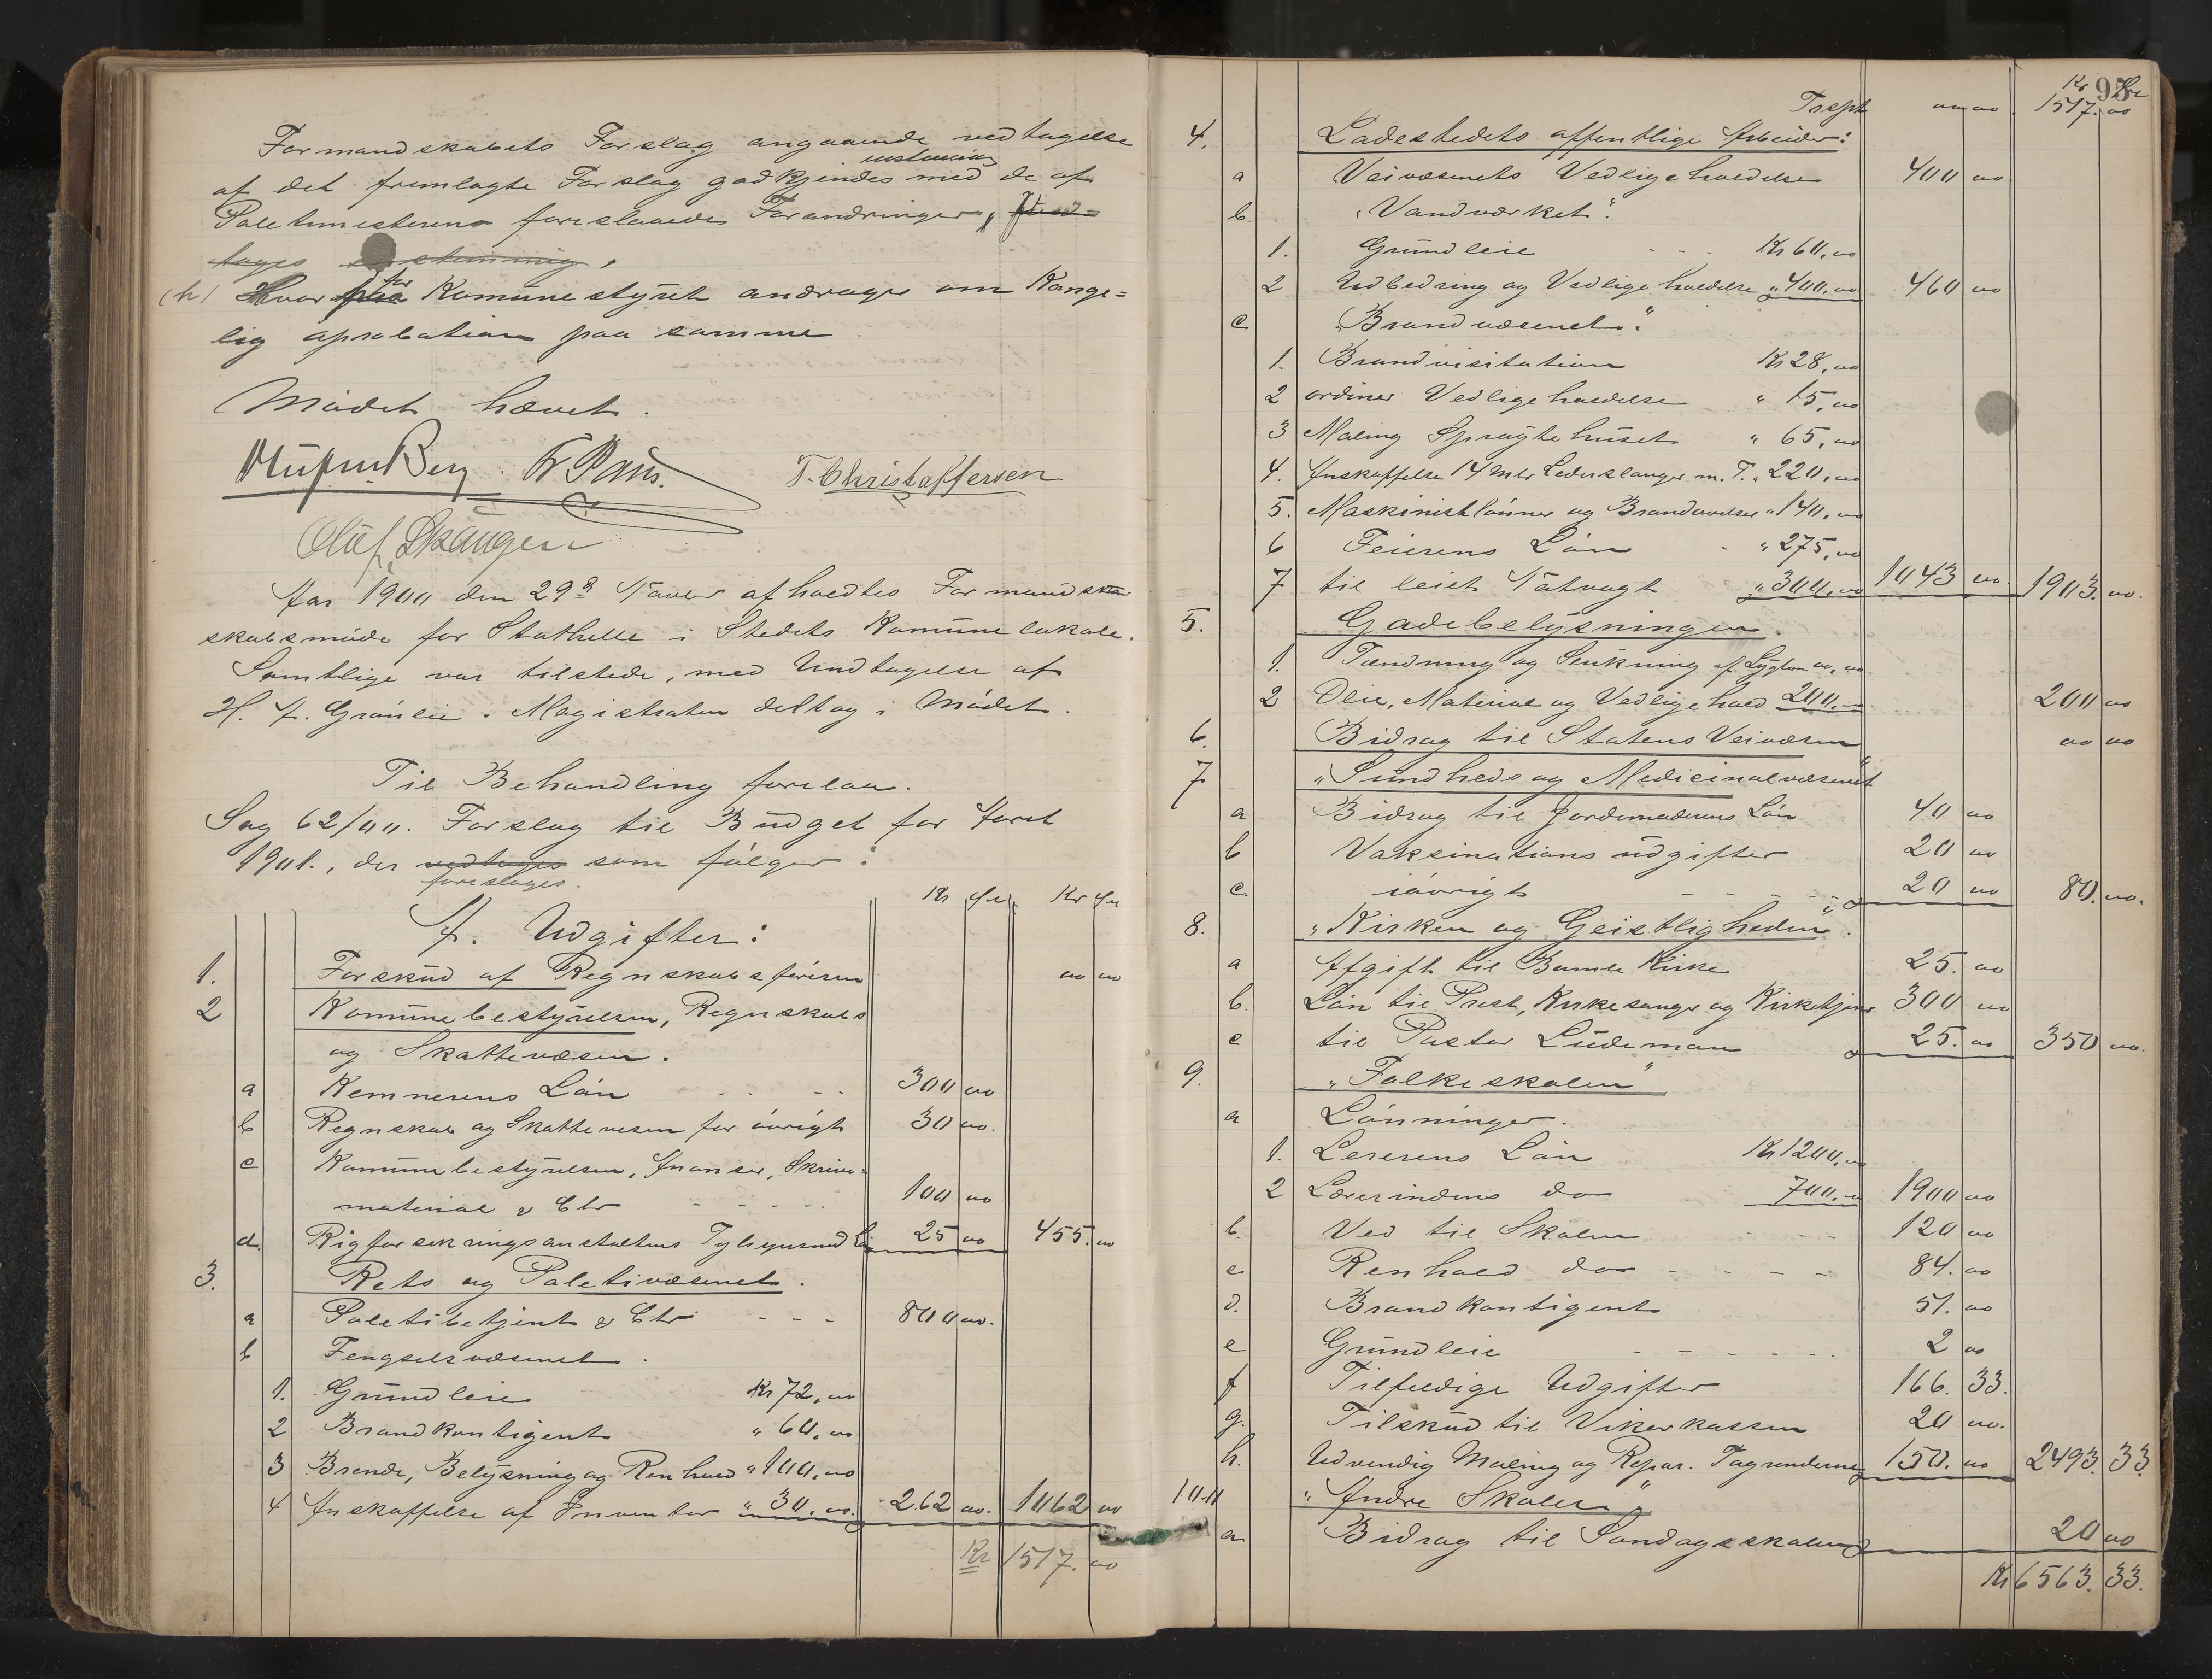 Formandskabets Forslag angaaende vedtagelse
enstemmig
af det fremlagte Forslag godkjendes med de af
Politimesterens foreslaaede Forandringer,
tages enstemmig,
for
(h) Hvor paa Komunestyret andrager om Konge=
lig aprobation paa samme.
Mødet hævet.
T. Christoffersen
Oluf Skaugen
Aar 1900 den 29de Novbr afholdtes Formandska
skabsmøde for Stathelle i Stedets Komunelokale.
Samtlige var tilstede, med Undtagelse af
H. A. Grønlie. Magistraten deltog i Mødet.
Til Behandling forelaa.
Sag 62/00. Forslag til Budget for Aaret
1901., der vedtages som følger:
foreslages.
Kr Øre Kr Øre
A. Udgifter:
1. Forskud af Regnskabsføreren 00 00
2 Komunebestyrelsen, Regnskabs
og Skattevæsen.
a Kemnerens Løn 300 00
b Regnskab og Skattevesen for øvrigt 30 00.
c Komunebestyrelsen, Ananser, Skrive=
material & Ctr 100 00
d. Rigforsikringsanstaltens Tylsynsmd Løn 25 00 455. 00
3. Rets og Poletivæsenet.
a Poletibetjent & Ctr 800 00.
b Fengselsvæsenet.
1. Grundleie Kr 72,00
2 Brandkontigent " 60,00
3 Brende, Belysning og Renhold " 100,00
4 Anskaffelse af Inventar " 30.00. 262 00. 1062 00
Kr 1517. 00
95
Kr Øre
Trspt 00 00 1517. 00
4. Ladestedets offentlige Arbeider:
a Veivæsenets Vedligeholdelse 400 00
b. "Vandværket".
1. Grundleie Kr 60,00
2 Udbedring og Vedligeholdelse " 400.00 460 00
c "Brandvæsenet".
1. Brandvisitation Kr 28,00
2 ordinær Vedligeholdelse " 15,00
3 Maling Sprøytehuset " 65,00
4. Anskaffelse 14 mtr Lederslanger m. T. " 220,00
5. Maskinistlønner og Brandøvelser " 140,00
6 Feierens Løn " 275,00
7 til leiet Natvagt " 300,00 1043 00. 1903. 00.
5. Gadebelysningen.
1. Tændning og Slukning af Lygterne 00,00
2 Olie, Material og Vedligehold 200.00 200 00
6. Bidrag til Statens Veivæsen 00 00
7 "Sundheds og Medicinalvæsenet"
a Bidrag til Jordemoderens Løn 40 00
b Vaksinations udgifter 20 00
c. iøvrigt 20 00 80. 00.
8. "Kirken og Geistligheden".
a Afgift til Bamle Kirke 25. 00
b. Løn til Prest, Kirkesanger og Kirketjener 300 00
c til Pastor Ludeman 25. 00 350 00.
9. "Folkeskolen"
a Lønninger.
1. Lererens Løn Kr 1200,00
2 Lærerindens do 700.00 1900 00
b. Ved til Skolen 120 00
c Renhold do 84. 00
d. Brandkontigent 51. 00
e Grundleie 2 00
f Tilfeldige Udgifter 166. 33.
g. Tilskud til Vikerkassen 20 00.
h. Udvendig Maling og Repar. Tagrenderne 150. 00 2493. 33
10-11 "Andre Skoler"
a Bidrag til Søndagsskolen 20 00
Kr 6563. 33.